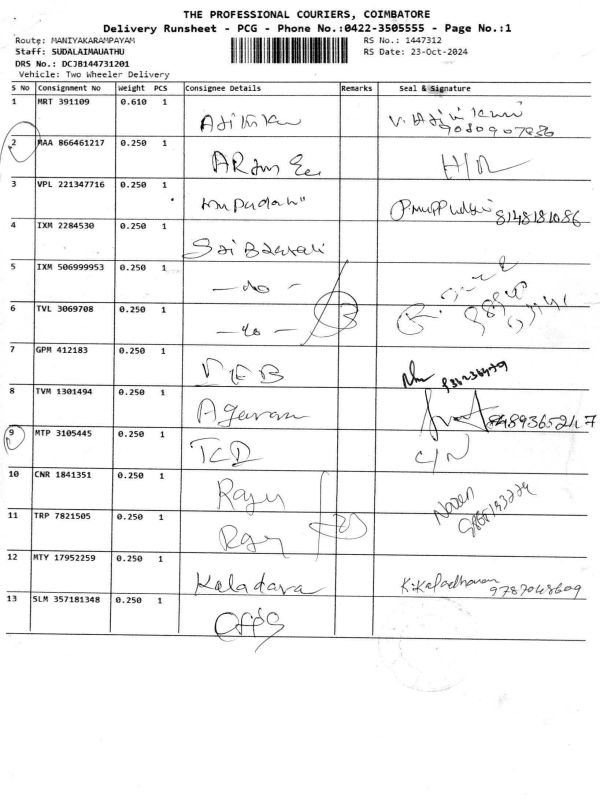 THE PROFESSIONAL COURIERS, COIMBATORE
Delivery Runsheet - PCG - Phone No.:0422-3505555 - Page No.:1
Route: MANIYAKARAMPAYAM RS No.: 1447312
Staff: SUDALAIMAUATHU RS Date: 23-Oct-2024
DRS No.: DCJB144731201
Vehicle: Two Wheeler Delivery
S No Consignment No Weight PCS Consignee Details Remarks Seal & Signature
1 MRT 391109 0.610 1
2 MAA 866461217 0.250 1 H/R
3 VPL 221347716 0.250 1 8148181086
4 IXM 2284530 0.250 1 Sri
5 IXM 506999953 0.250 1 -do-
6 TVL 3069708 0.250 1 -do-
7 GPM 412183 0.250 1
8 TVM 1301494 0.250 1
9 MTP 3105445 0.250 1 TCD C/N
10 CNR 1841351 0.250 1 Raju Naven
11 TRP 7821505 0.250 1
12 MTY 17952259 0.250 1 Kaladara K.Kaladharan
9787048609
13 SLM 357181348 0.250 1 Offs